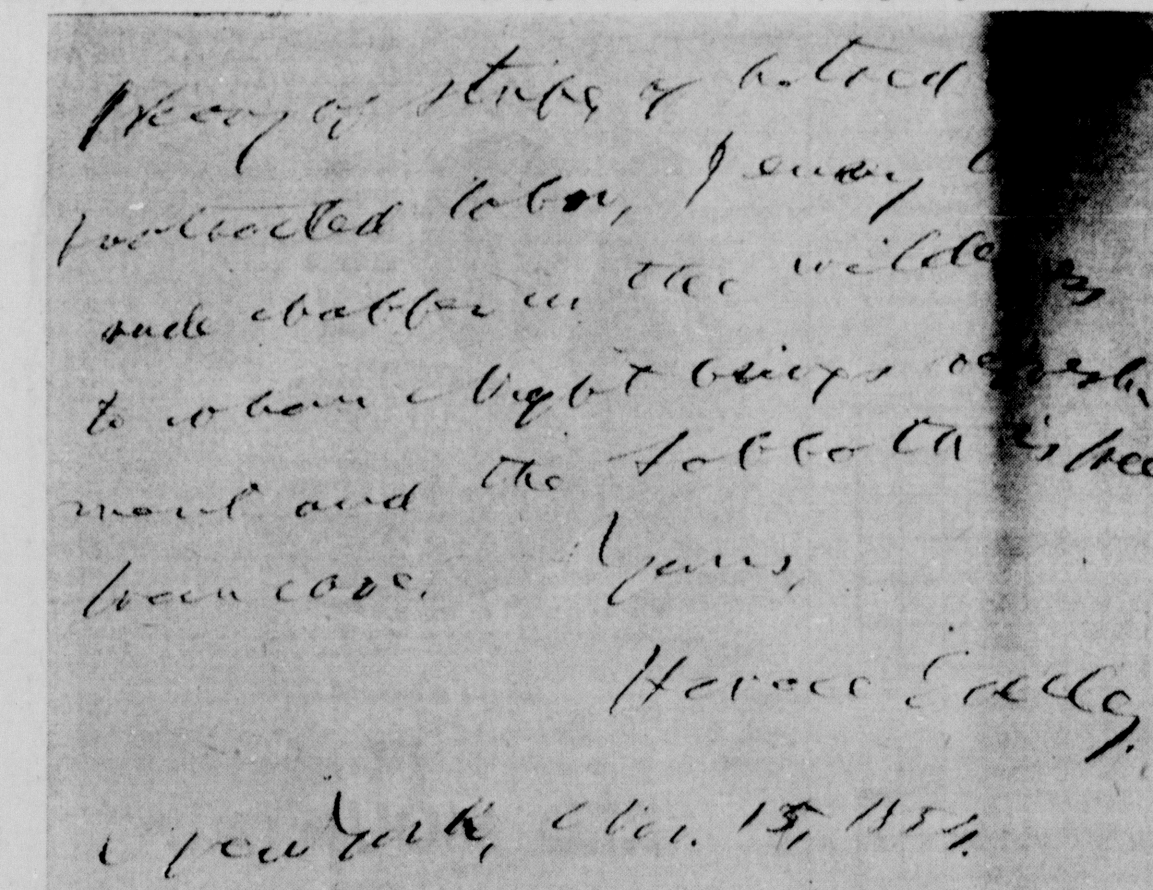 Weary of strife, of hatred
protracted labor, I envy
rude chopper in the wilderness
to whom Night brings refresh
ment and the Sabbath is free
from care. Yours,
Horace Greeley.
New York, Nov. 15, 1854.